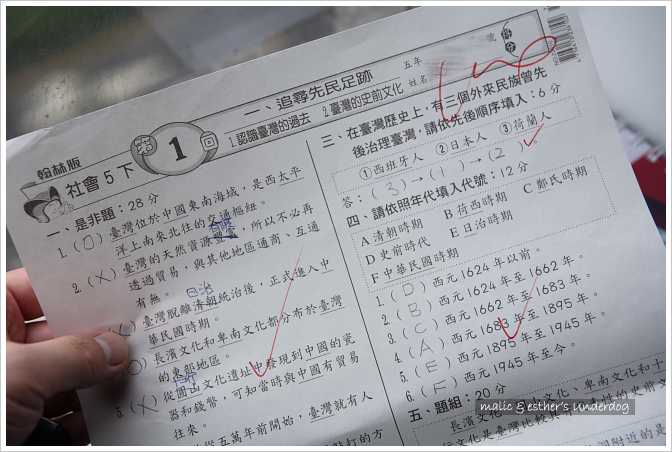 翰林版
社會5下
第1回
一、追尋先民足跡
1.認識臺灣的過去 2.臺灣的史前文化
五年
姓名
號
得分
100
一、是非題：28分
1.(O)臺灣位於中國東南海域，是西太平
洋上南來北往的交通樞紐。
2.(X)臺灣的天然資源豐富，所以不必再
有限
透過貿易，與其他地區通商、互通
有無。
日治
(X)臺灣脫離清朝統治後，正式進入中
華民國時期。
(O)長濱文化和卑南文化都分布於臺灣
的東部地區。
5.(X)從圓山文化遺址中發現到中國的瓷
器和錢幣，可知當時與中國有貿易
往來。
從五萬年前開始，臺灣就有人
打的方
三、在臺灣歷史上，有三個外來民族曾先
後治理臺灣，請依先後順序填入：6分
①西班牙人 ②日本人 ③荷蘭人
答：(3)→(1)→(2)。
四、請依照年代填入代號：12分
A清朝時期 B荷西時期 C鄭氏時期
D史前時代 E日治時期
F中華民國時期
1.(D)西元1624年以前。
2.(B)西元1624年至1662年。
3.(C)西元1662年至1683年。
4.(A)西元1683年至1895年。
5.(E)西元1895年至1945年。
6.(F)西元1945年至今。
五、題組：20分
文化、卑南文化和十
行文化是臺灣比較具
性的史前文
malic & esther's Underdog